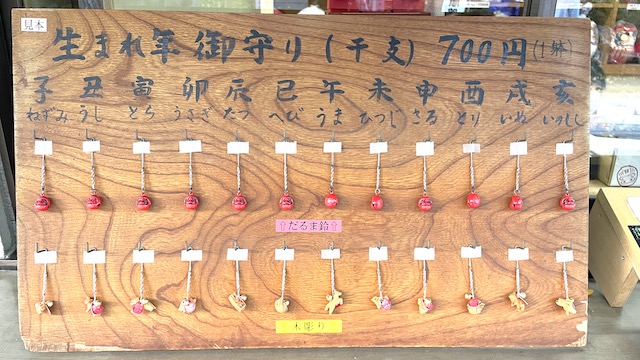 見本
生まれ年御守り(干支)700円(1躰)
子 丑 寅 卯 辰 巳 午 未 申 酉 戌 亥
ねずみ うし とら うさぎ たつ へび うま ひつじ さる とり いぬ いのしし
⇧だるま鈴⇧
木彫り